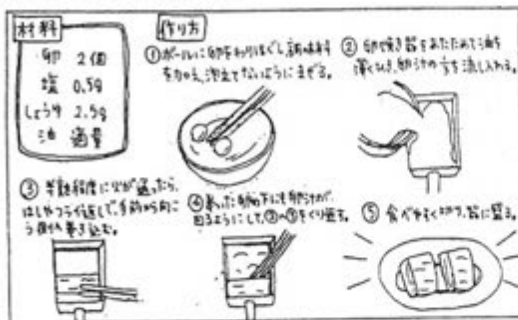 材料
卵 2個
塩 0.5g
しょうゆ 2.5g
油 適量
作り方
①ボールに卵をわりほぐし、調味料
を加え、泡立てないようにまぜる。
② 卵焼き器をあたためて油を
薄くひき、卵汁の
を流し入れる。
③ 半熟程度に火が通ったら、
はしやフライ返しで、手前から向こ
う側へ巻き込む。
④
下にも卵汁が
回るようにして、
をくり返す。
⑤ 食べやすく切り、皿に盛る。